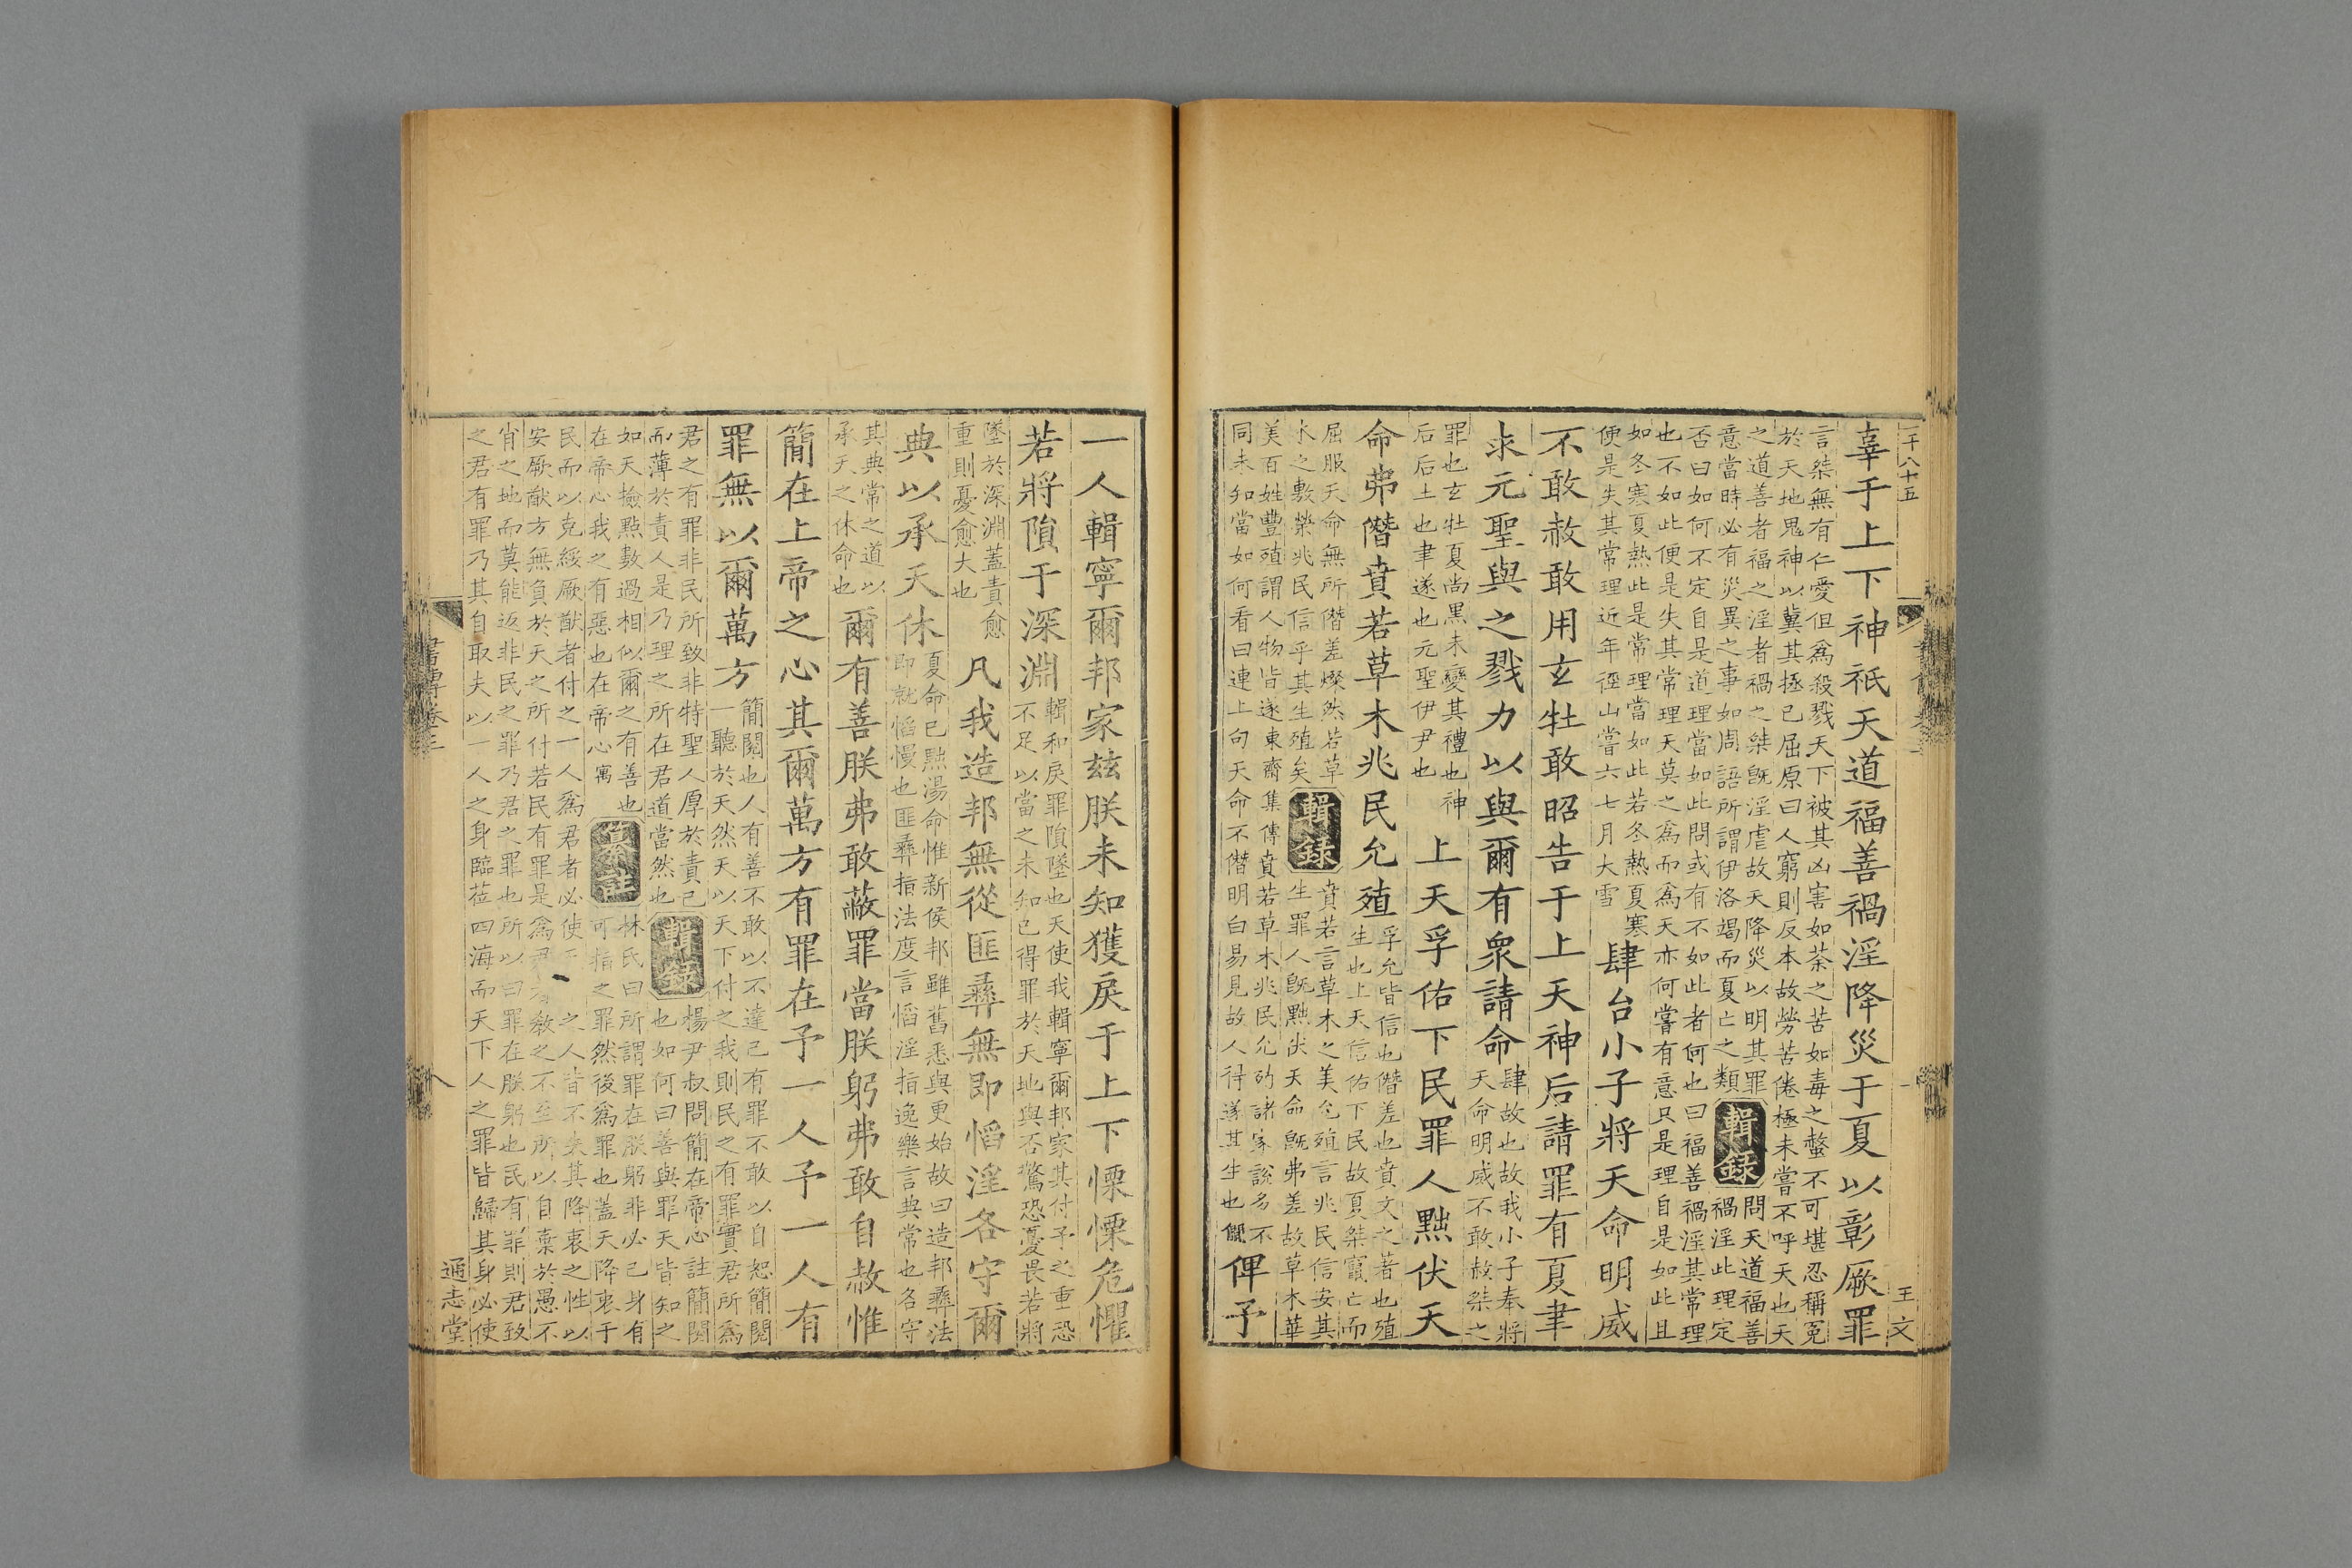 一千八十五
王文
辜于上下神祇天道福善禍淫降災于夏以彰厥罪
言桀無有仁愛但爲殺戮天下被其凶害如荼之苦如毒之螫不可堪忍稱冤
於天地鬼神以冀其拯己屈原曰人窮則反本故勞苦倦極未嘗不呼天也天
之道善者福之淫者禍之桀旣淫虐故天降災以明其罪
意當時必有災異之事如周語所謂伊洛竭而夏亡之類
輯錄
問天道福善
禍淫此理定
否曰如何不定自是道理當如此問或有不如此者何也曰福善禍淫其常理
也不如此便是失其常理天莫之爲而爲天亦何嘗有意只是理自是如此且
如冬寒夏熱此是常理當如此若冬熱夏寒
便是失其常理近年徑山嘗六七月大雪
肆台小子將天命明威
不敢赦敢用玄牡敢昭告于上天神后請罪有夏聿
求元聖與之戮力以與爾有衆請命
肆故也故我小子奉將
天命明威不敢赦桀之
罪也玄牡夏尚黑未變其禮也神
后后土也聿遂也元聖伊尹也
上天孚佑下民罪人黜伏天
命弗僭賁若草木兆民允殖
孚允皆信也僭差也賁文之著也殖
生也上天信佑下民故夏桀竄亡而
屈服天命無所僭差燦然若草
木之敷榮兆民信乎其生殖矣
輯錄
賁若言草木之美允殖言兆民信安其
生罪人旣黜伏天命旣弗差故草木華
美百姓豐殖謂人物皆遂東齋集傳賁若草木兆民允殖諸家說多不
同未知當如何看曰連上句天命不僭明白易見故人得遂其生也
俾予
一人輯寧爾邦家玆朕未知獲戾于上下慄慄危懼
若將隕于深淵
輯和戾罪隕墜也天使我輯寧爾邦家其付予之重恐
不足以當之未知己得罪於天地與否驚恐憂畏若將
墜於深淵蓋責愈
重則憂愈大也
凡我造邦無從匪彝無即慆淫各守爾
典以承天休
夏命已黜湯命惟新侯邦雖舊悉與更始故曰造邦彝法
即就慆慢也匪彝指法度言慆淫指逸樂言典常也各守
其典常之道以
承天之休命也
爾有善朕弗敢蔽罪當朕躬弗敢自赦惟
簡在上帝之心其爾萬方有罪在予一人予一人有
罪無以爾萬方
簡閱也人有善不敢以不達己有罪不敢以自恕簡閱
一聽於天然天以天下付之我則民之有罪實君所爲
君之有罪非民所致非特聖人厚於責己
而薄於責人是乃理之所在君道當然也
輯錄
楊尹叔問簡在帝心註簡閱
也如何曰善與罪天皆知之
如天撿點數過相似爾之有善也
在帝心我之有惡也在帝心㝢
纂註
林氏曰所謂罪在朕躬非必己身有
可指之罪然後爲罪也蓋天降衷于
民而以克綏厥猷者付之一人爲君者必使之人皆不失其降衷之性以
安厥猷方無負於天之所付若民有罪是爲君敎之不至所以自棄於愚不
肖之地而莫能返非民之罪乃君之罪也所以曰罪在朕躬也民有罪則君致
之君有罪乃其自取夫以一人之身臨莅四海而天下人之罪皆歸其身必使
書傳卷三
八
通志堂